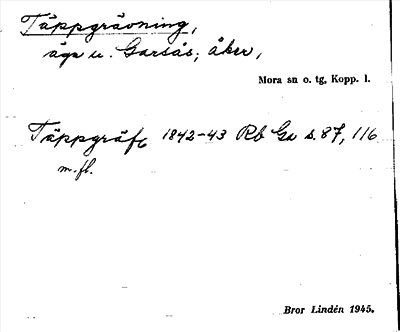 Täppgrävning,
äga u. Garsås; åker,
Mora sn o. tg, Kopp. l.
Täppgräft 1842-43 Rb Ga s. 87, 116
m.fl.
Bror Lindén 1945.